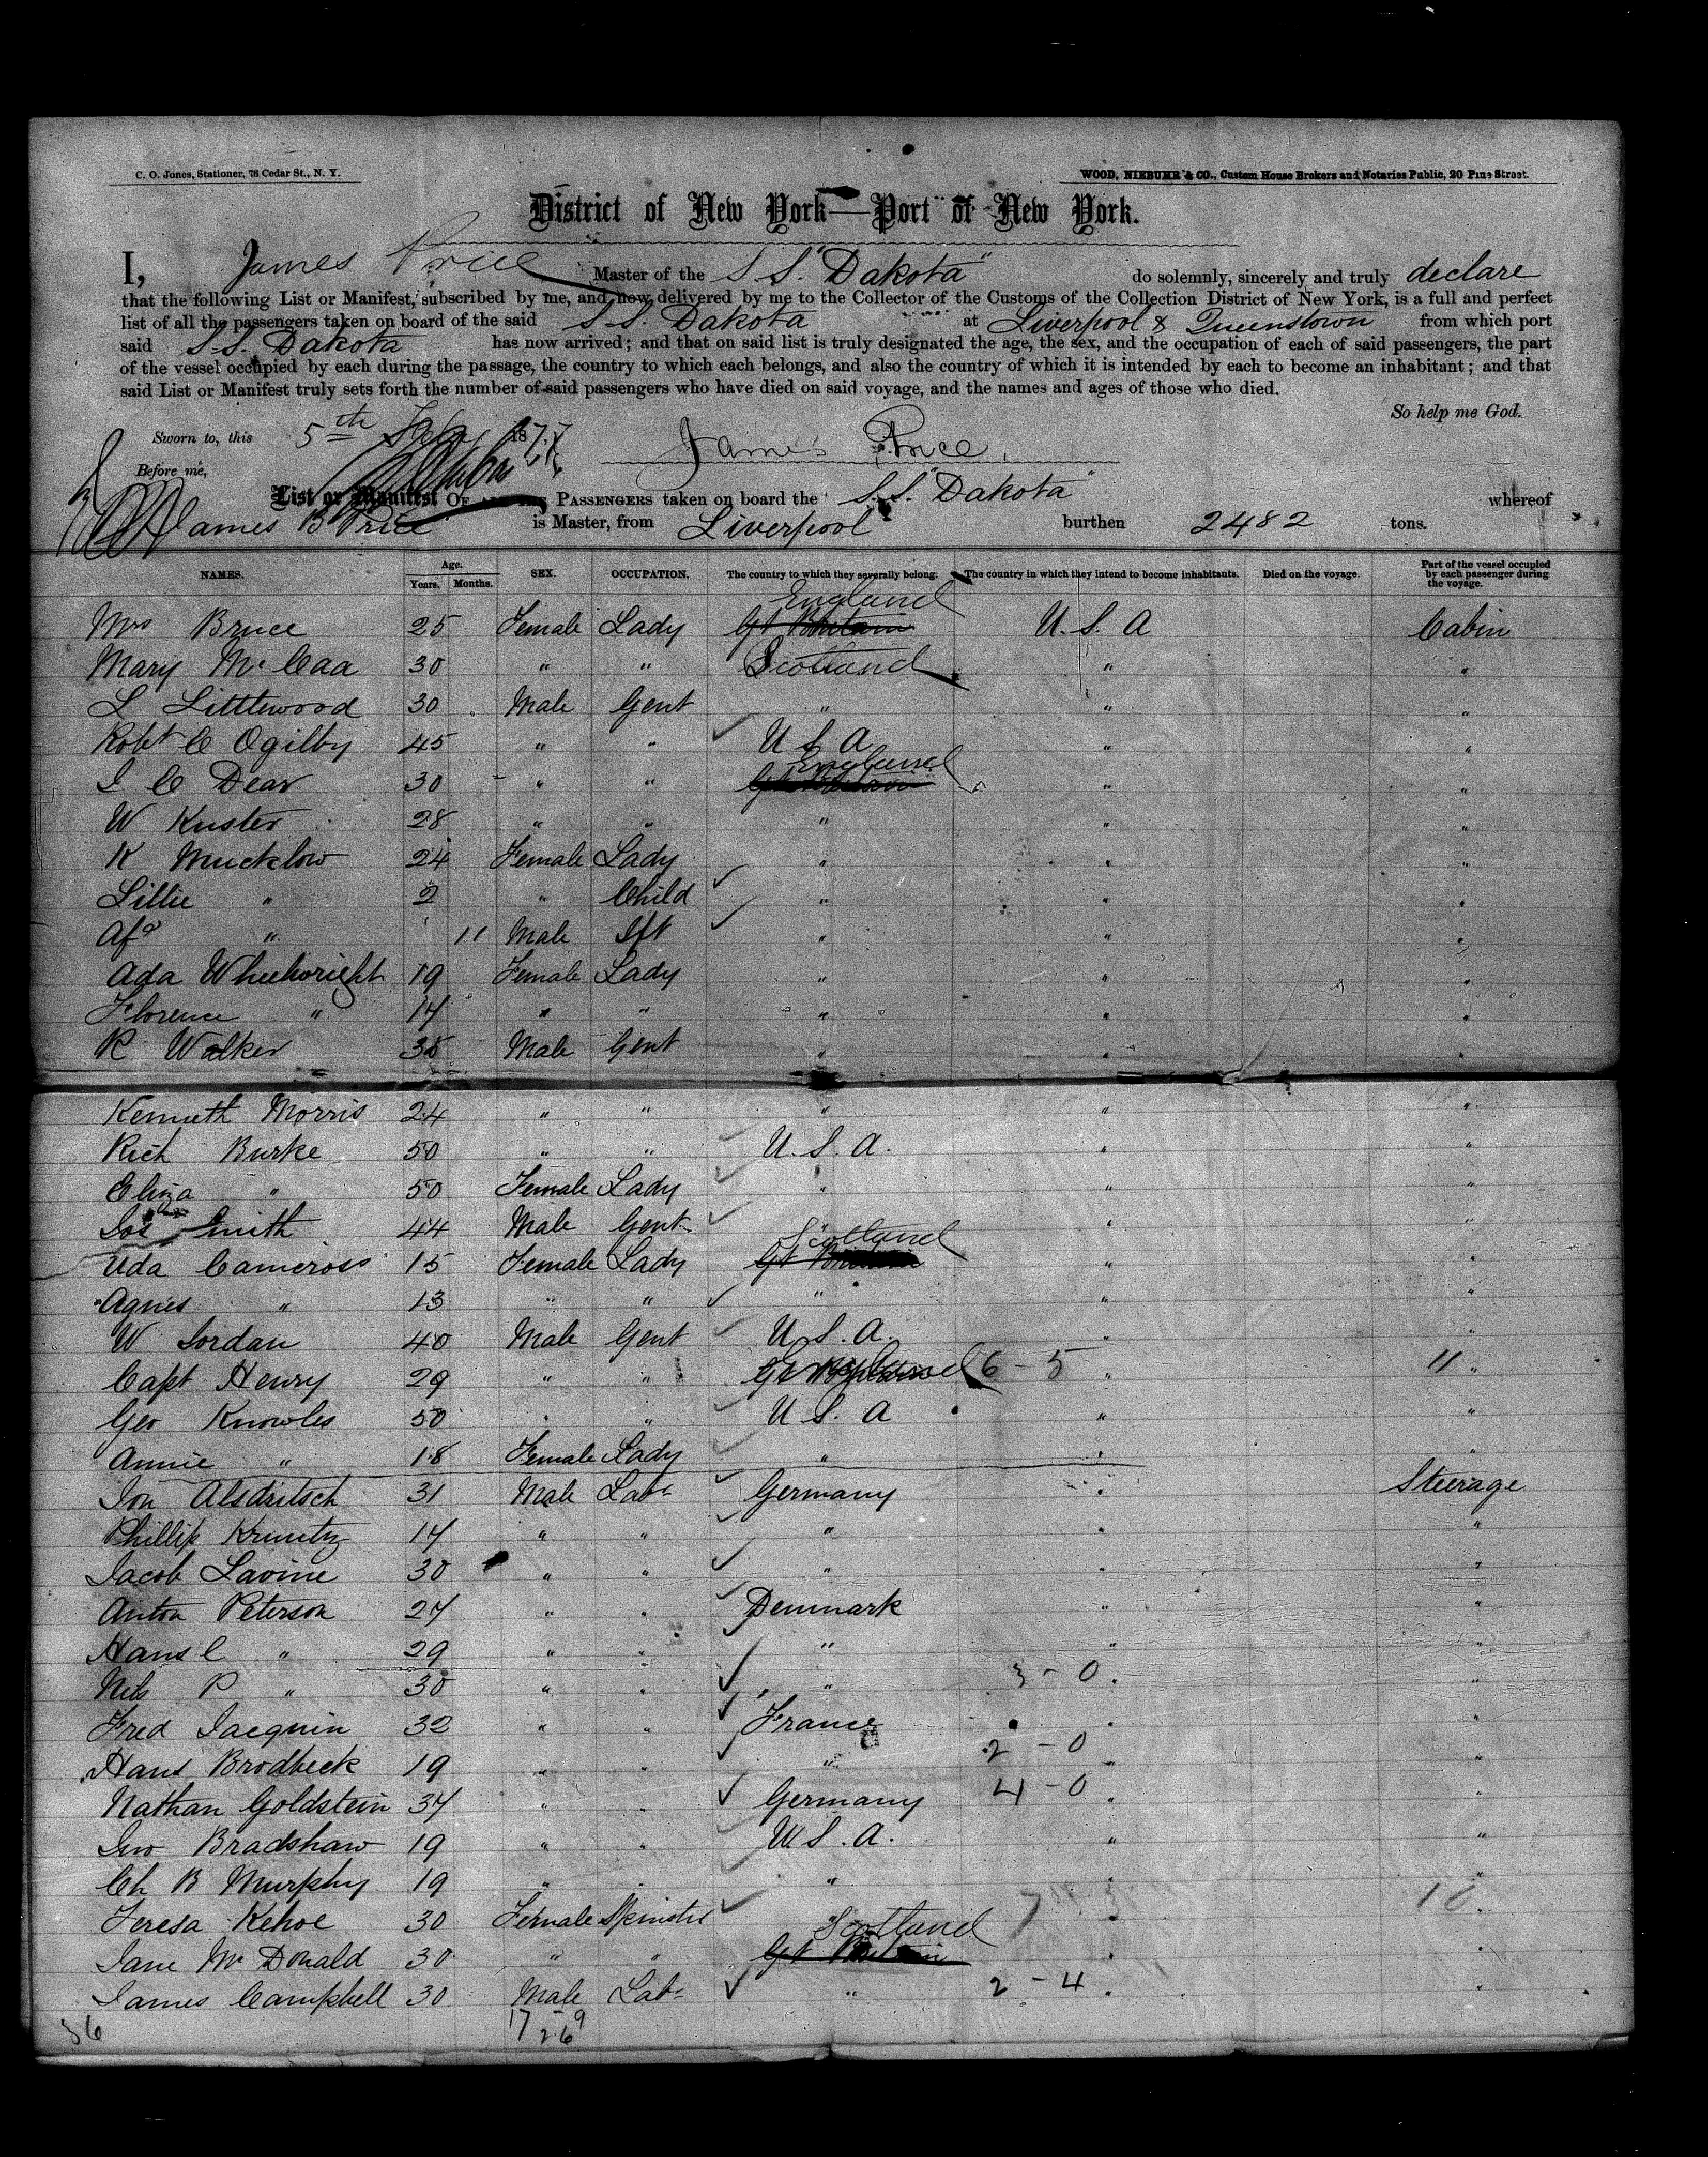 C. O. Jones, Stationer, 78 Cedar St., N. Y.
WOOD, NIEBUHR & CO., Custom House Brokers and Notaries Public, 20 Pine Street.
District of New York—Port of New York.
I, James Price Master of the S S "Dakota" do solemnly, sincerely and truly declare
that the following List or Manifest, subscribed by me, and now delivered by me to the Collector of the Customs of the Collection District of New York, is a full and perfect
list of all the passengers taken on board of the said S S. Dakota at Liverpool & Queenstown from which port
said S.S. Dakota has now arrived; and that on said list is truly designated the age, the sex, and the occupation of each of said passengers, the part
of the vessel occupied by each during the passage, the country to which each belongs, and also the country of which it is intended by each to become an inhabitant; and that
said List or Manifest truly sets forth the number of said passengers who have died on said voyage, and the names and ages of those who died.
So help me God.
Sworn to, this 5th 1877
James Price.
Before me,
List or Manifest OF PASSENGERS taken on board the S.S. "Dakota" whereof
James B Price is Master, from Liverpool burthen 2482 tons.
NAMES. Age. Years. Months. SEX. OCCUPATION. The country to which they severally belong. The country in which they intend to become inhabitants. Died on the voyage. Part of the vessel occupied by each passenger during the voyage.
England
Mrs Bruce 25 Female Lady Gt Britain U. S. A Cabin
Mary McCaa 30 " " Scotland " "
L Littlewood 30 Male Gent " " "
Robt C Ogilby 45 " " U S A " "
England
I C Dear 30 " " Gt Britain " "
W Kuster 28 " " " " "
K Mucklow 24 Female Lady " " "
Lillie " 2 " Child " " "
Afd " 11 Male Ift " " "
Ada Wheelwright 19 Female Lady " " "
Florence " 14 " " " " "
R Walker 38 Male Gent " " "
Kenneth Morris 24 " " " " "
Rich Burke 50 " " U. S. A. " "
Eliza " 50 Female Lady " " "
Jos Smith 44 Male Gent " " "
Scotland
Uda Cameross 15 Female Lady Gt Britain " "
Agnes " 13 " " " " "
W Jordan 40 Male Gent U. S. A. " "
Capt Henry 29 " " Gt Britain England 6 - 5 " 11 "
Geo Knowles 50 " " U. S. A " "
Annie " 18 Female Lady " " "
Jon Alsdritsch 31 Male Labr Germany " Steerage
Phillip Kruntz 14 " " " " "
Jacob Lavine 30 " " " " "
Anton Peterson 24 " " Denmark " "
Hans C " 29 " " " " "
Nils P " 30 " " " 3 - 0 " "
Fred Jacquin 32 " " France " "
Hans Brodbeck 19 " " " 2 - 0 " "
Nathan Goldstein 34 " " Germany 4 - 0 " "
Jno Bradshaw 19 " " U. S. A. " "
Ch B Murphy 19 " " " " "
Teresa Kehoe 30 Female Spinster " " 10 "
Scotland
Jane Mc Donald 30 " " Gt Britain " "
James Campbell 30 Male Labr " 2 - 4 " "
36
17 - 9
26